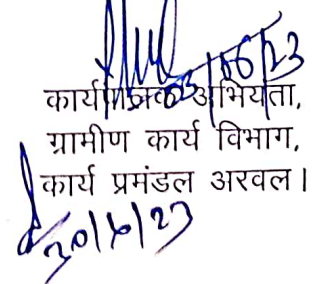 कार्यपालक अभियंता,
ग्रामीण कार्य विभाग,
कार्य प्रमंडल अरवल।
30/6/23